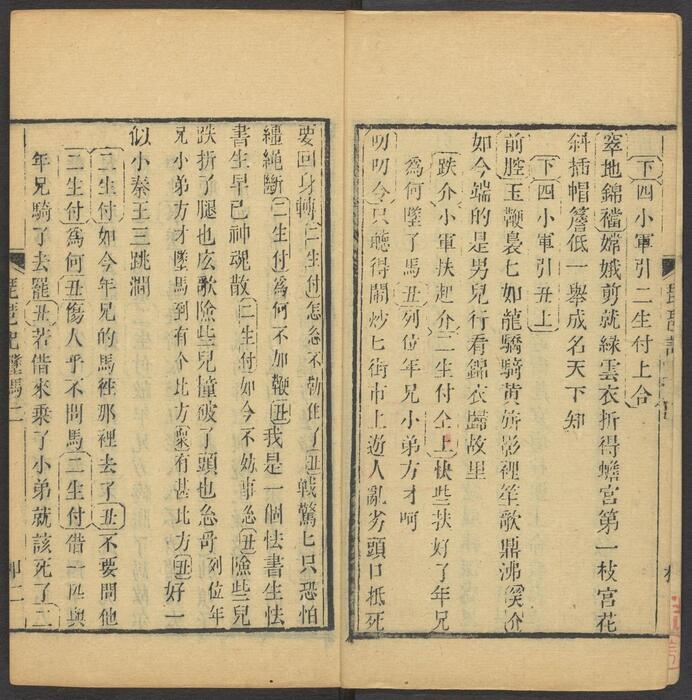 下四小軍引二生付上合
窣地錦襠嫦娥剪就綠雲衣折得蟾宮第一枝宮花
斜插帽簷低一舉成名天下知
下四小軍引丑上
前腔玉鞭裊七如龍驕騎黃旂影裡笙歌鼎沸笑介
如今端的是男兒行看錦衣歸故里
跌介小軍扶起介二生付仝上快些扶好了年兄
為何墜了馬丑列位年兄小弟方才呵
叨叨令只聽得鬧炒七街市上遊人亂劣頭口抵死
要回身轉二生付怎忽不勒住了丑戰驚七只恐怕
繮繩斷二生付為何不加鞭丑我是一個怯書生怯
書生早已神魂散二生付如今不妨事忽丑險些兒
跌折了腿也庅歌險些兒撞破了頭也忽哥列位年
兄小弟方才墜馬到有个比方眾有甚比方丑好一
似小秦王三跳澗
二生付如今年兄的馬徃那裡去了丑不要問他
二生付為何丑傷人乎不問馬二生付借一匹與
年兄騎了去罷丑若借來乘了小弟就該死了二
琵琶記墜馬二